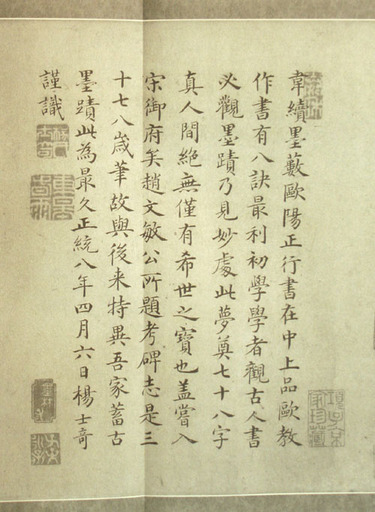 韋續墨藪歐陽正行書在中上品歐教
作書有八訣最利初學學者觀古人書
必觀墨蹟乃見妙處此夢奠七十八字
真人間絕無僅有希世之寶也盖嘗入
宗御府矣趙文敏公所題考碑志是三
十七八歲筆故與後来特異吾家蓄古
墨蹟此為最久正統八年四月六日楊士奇
謹識